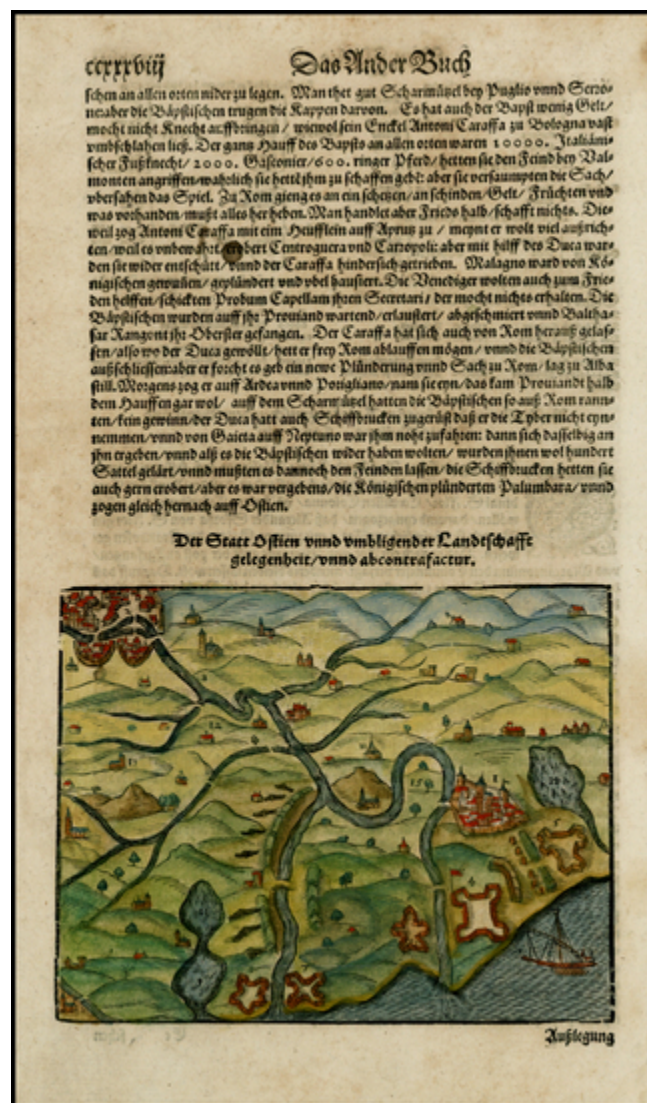 ccxxxviij Das Ander Buch
schen an allen orten nider zu legen. Man thet gut Scharmützel bey Puglio vnnd Serzo-
ne: aber die Bäpstischen trugen die Kappen darvon. Es hat auch der Bapst wenig Gelt/
mocht nicht Knecht auffbringen / wiewol sein Enckel Antoni Caraffa zu Bologna vast
vmbschlahen ließ. Der gantz Hauff des Bapsts an allen orten waren 10000. Italiäni-
scher Fußknecht / 2000. Gasconier / 600. ringer Pferd / hetten sie den Feind bey Val-
monten angriffen / warlich sie hettē jhm zu schaffen gebē: aber sie versaumpten die Sach /
vbersahen das Spiel. Zu Rom gieng es an ein schetzen / an schinden / Gelt / Früchten vnd
was vorhanden / mußt alles her heben. Man handlet aber Frieds halb / schafft nichts. Die-
weil zog Antoni Caraffa mit eim Heufflein auff Aprutz zu / meynt er wolt viel außrich-
ten / weil es vnbewahrt / erobert Centroguera vnd Carzopoli: aber mit hilff des Duca war-
den sie wider entschütt / vnnd der Caraffa hindersich getrieben. Malagno ward von Kö-
nigischen gewunnen / geplündert vnd vbel haußiert. Die Venediger wolten auch zum Frie-
den helffen / schickten Probum Capellam jhren Secretari / der mocht nichts erhalten. Die
Bäpstischen wurden auff jhr Prouiand wartend / erlaustert / abgeschmiert vnnd Baltha-
sar Rangont jhr Oberster gefangen. Der Caraffa hat sich auch von Rom herauß gelas-
sen / also wo der Duca gewöllt / hett er frey Rom ablauffen mögen / vnnd die Bäpstischen
außschliessen: aber er forcht es geb ein newe Plünderung vnnd Sach zu Rom / lag zu Alba
still. Morgens zog er auff Ardea vnnd Porigliano / nam sie eyn / das kam Prouiandt halb
dem Hauffen gar wol / auff dem Scharmützel hatten die Bäpstischen so auß Rom rann-
ten / kein gewinn / der Duca hatt auch Schiffbrucken zugerüst daß er die Tyber nicht eyn-
nemmen / vnnd von Gaieta auff Neptuno war jhm noht zufahren: dann sich dasselbig an
jhn ergeben / vnnd alß es die Bäpstischen wider haben wolten / wurden jhnen wol hundert
Sattel gelärt / vnnd mußten es dannoch den Feinden lassen / die Schiffbrucken hetten sie
auch gern erobert / aber es war vergebens / die Königischen plünderten Palumbara / vnnd
zogen gleich hernach auff Ostien.
Der Statt Ostien vnnd vmbligender Landtschafft
gelegenheit / vnnd abcontrafactur.
12
13
15
1
5
6
Außlegung